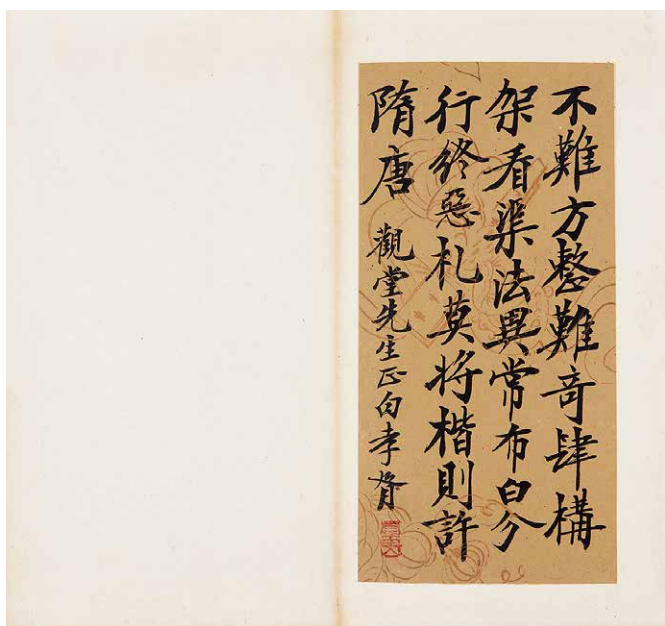 不難方整難竒肆構
架看渠法異常布白分
行終惡札莫将楷則許
隋唐 觀堂先生正句孝胥